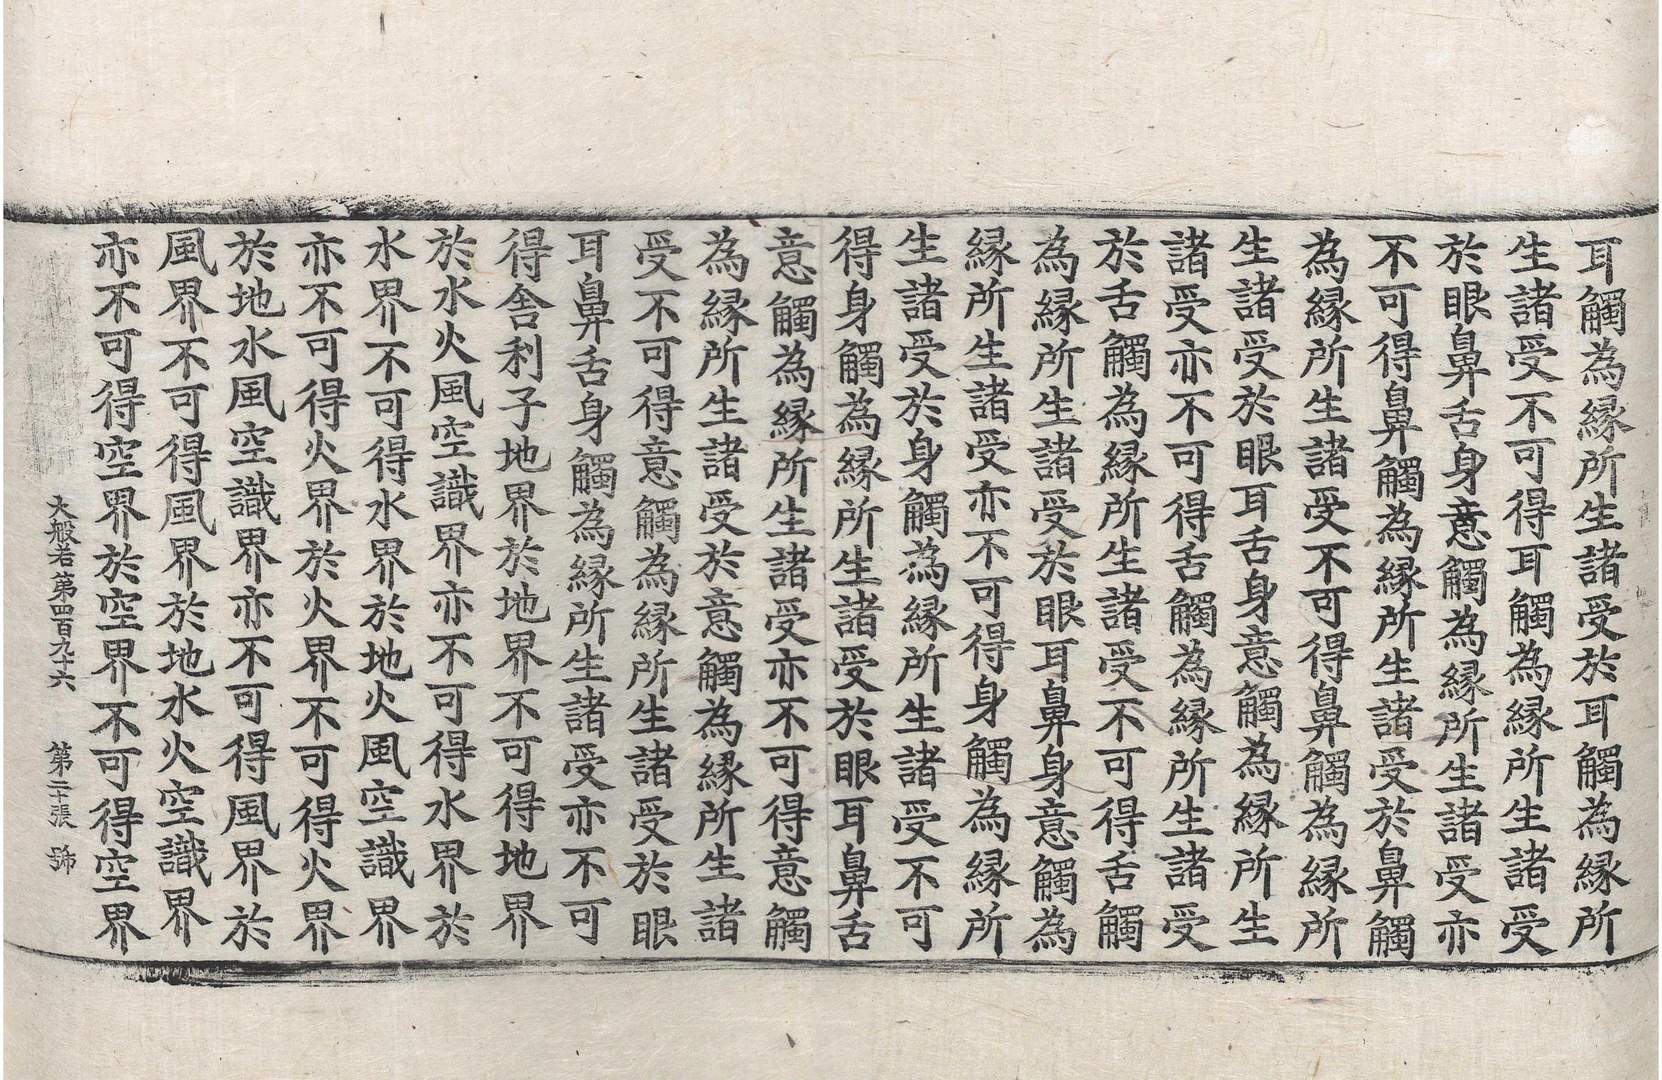 耳觸為緣所生諸受於耳觸為緣所
生諸受不可得耳觸為緣所生諸受
於眼鼻舌身意觸為緣所生諸受亦
不可得鼻觸為緣所生諸受於鼻觸
為緣所生諸受不可得鼻觸為緣所
生諸受於眼耳舌身意觸為緣所生
諸受亦不可得舌觸為緣所生諸受
於舌觸為緣所生諸受不可得舌觸
為緣所生諸受於眼耳鼻身意觸為
緣所生諸受亦不可得身觸為緣所
生諸受於身觸為緣所生諸受不可
得身觸為緣所生諸受於眼耳鼻舌
意觸為緣所生諸受亦不可得意觸
為緣所生諸受於意觸為緣所生諸
受不可得意觸為緣所生諸受於眼
耳鼻舌身觸為緣所生諸受亦不可
得舍利子地界於地界不可得地界
於水火風空識界亦不可得水界於
水界不可得水界於地火風空識界
亦不可得火界於火界不可得火界
於地水風空識界亦不可得風界於
風界不可得風界於地水火空識界
亦不可得空界於空界不可得空界
大般若第四百九十六 第二十張 號